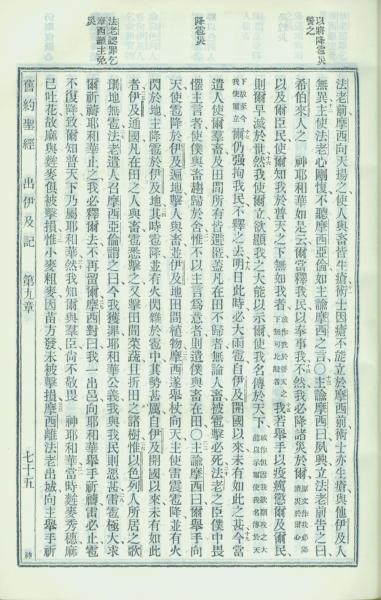 以將降雹災
警之
降雹災
法老認罪乞
摩西籲主免
災
法老前摩西向天揚之使人與畜皆生瘡術士因瘡不能立於摩西前術士亦生瘡與他伊及人
無異主使法老心剛愎不聽摩西亞倫如主諭摩西之言○主諭摩西曰夙興立法老前告之曰
希伯來人之 神耶和華如是云爾當釋我民以奉事我不然我必降諸災於爾原文作我必降諸災於爾心
以及爾臣民使爾知我於普天之下無如我者我若舉手以疫癘懲爾及爾民
則爾早滅於世然我使爾立欲顯我之大能以示爾使我名傳於天下
下故至今我使爾立爾仍強拘我民不釋之去明日此時必大雨雹自伊及開國以來未有如此之甚今當
遣人使爾羣畜及田間所有皆避匿蓋凡在田不歸者無論人畜被雹擊必死法老之臣僕中畏
懼主言者使僕與畜趨歸於舍惟不以主言為意者則遺僕與畜在田○主諭摩西曰爾舉手向
天使雹降於伊及遍地擊人與畜並伊及地田間植物摩西遂舉杖向天主使雷震雹降並有火
閃於地主降雹於伊及地其時雹降並有火閃雜於雹中其勢甚厲自伊及開國以來未有如此
者伊及通國凡在田之人與畜雹悉擊之又擊田間菜蔬且折田之諸樹惟以色列人所居之歌
珊地無雹法老遣人召摩西亞倫謂之曰今次我獲罪耶和華公義我與我民則惡甚雷雹極大求
爾祈禱耶和華止之我必釋爾去不再留爾摩西對曰我一出邑向耶和華舉手祈禱雷必止雹
不復降致爾知普天下乃屬耶和華然我知爾與羣臣尚不敬畏 神耶和華當時麰麥秀穗麻
已吐花故麻與麰麥俱被擊損惟小麥粗麥因苗方發未被擊損摩西離法老出城向主舉手祈
舊約聖經 出伊及記 第九章 七十五